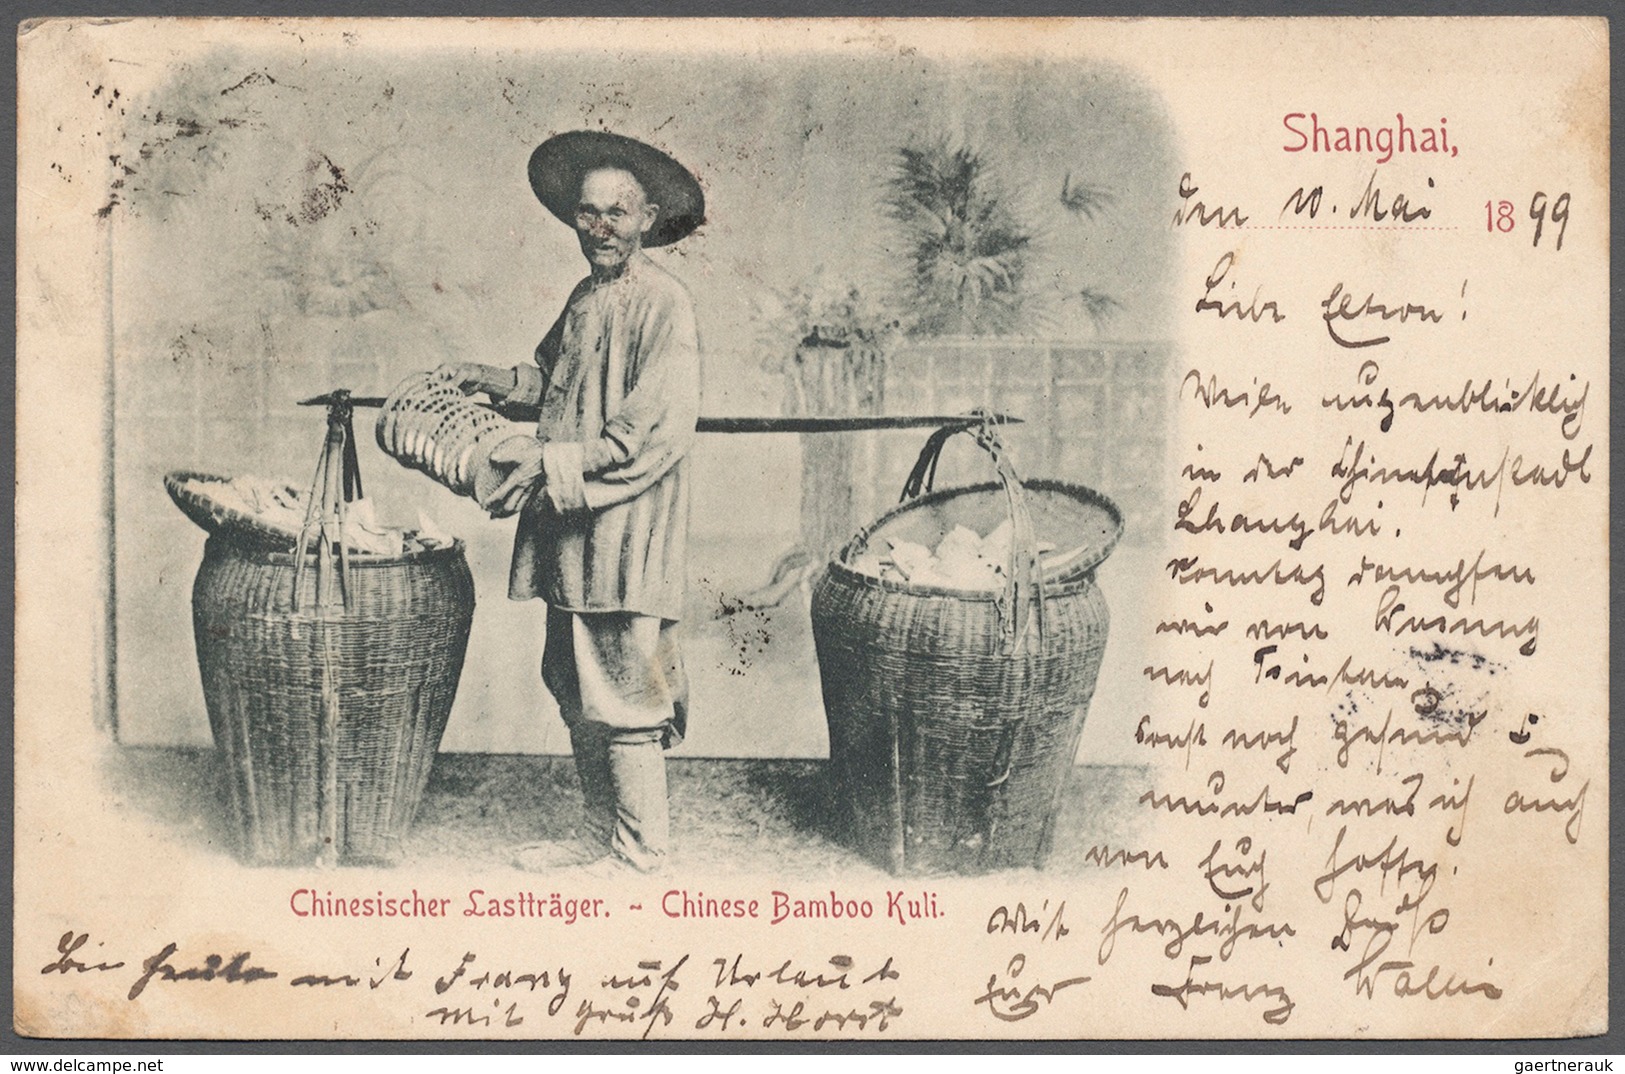 Shanghai,
den 10. Mai 1899
Liebe Eltern!
Weile augenblicklich
in der Chinesenstadt
Shanghai.
Sonntag dampfen
wir von Wusung
nach Tsintau,
sonst noch gesund &
munter, was ich auch
von Euch hoffe.
Mit herzlichen Gruß
Euer Franz
Chinesischer Lastträger. - Chinese Bamboo Kuli.
Bin heute mit Franz auf Urlaub
mit Gruß H. Horst
www.delcampe.net
gaertnerauk